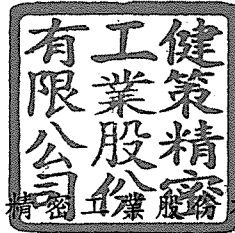 健策精密
工業股份
有限公司
精密工業股份